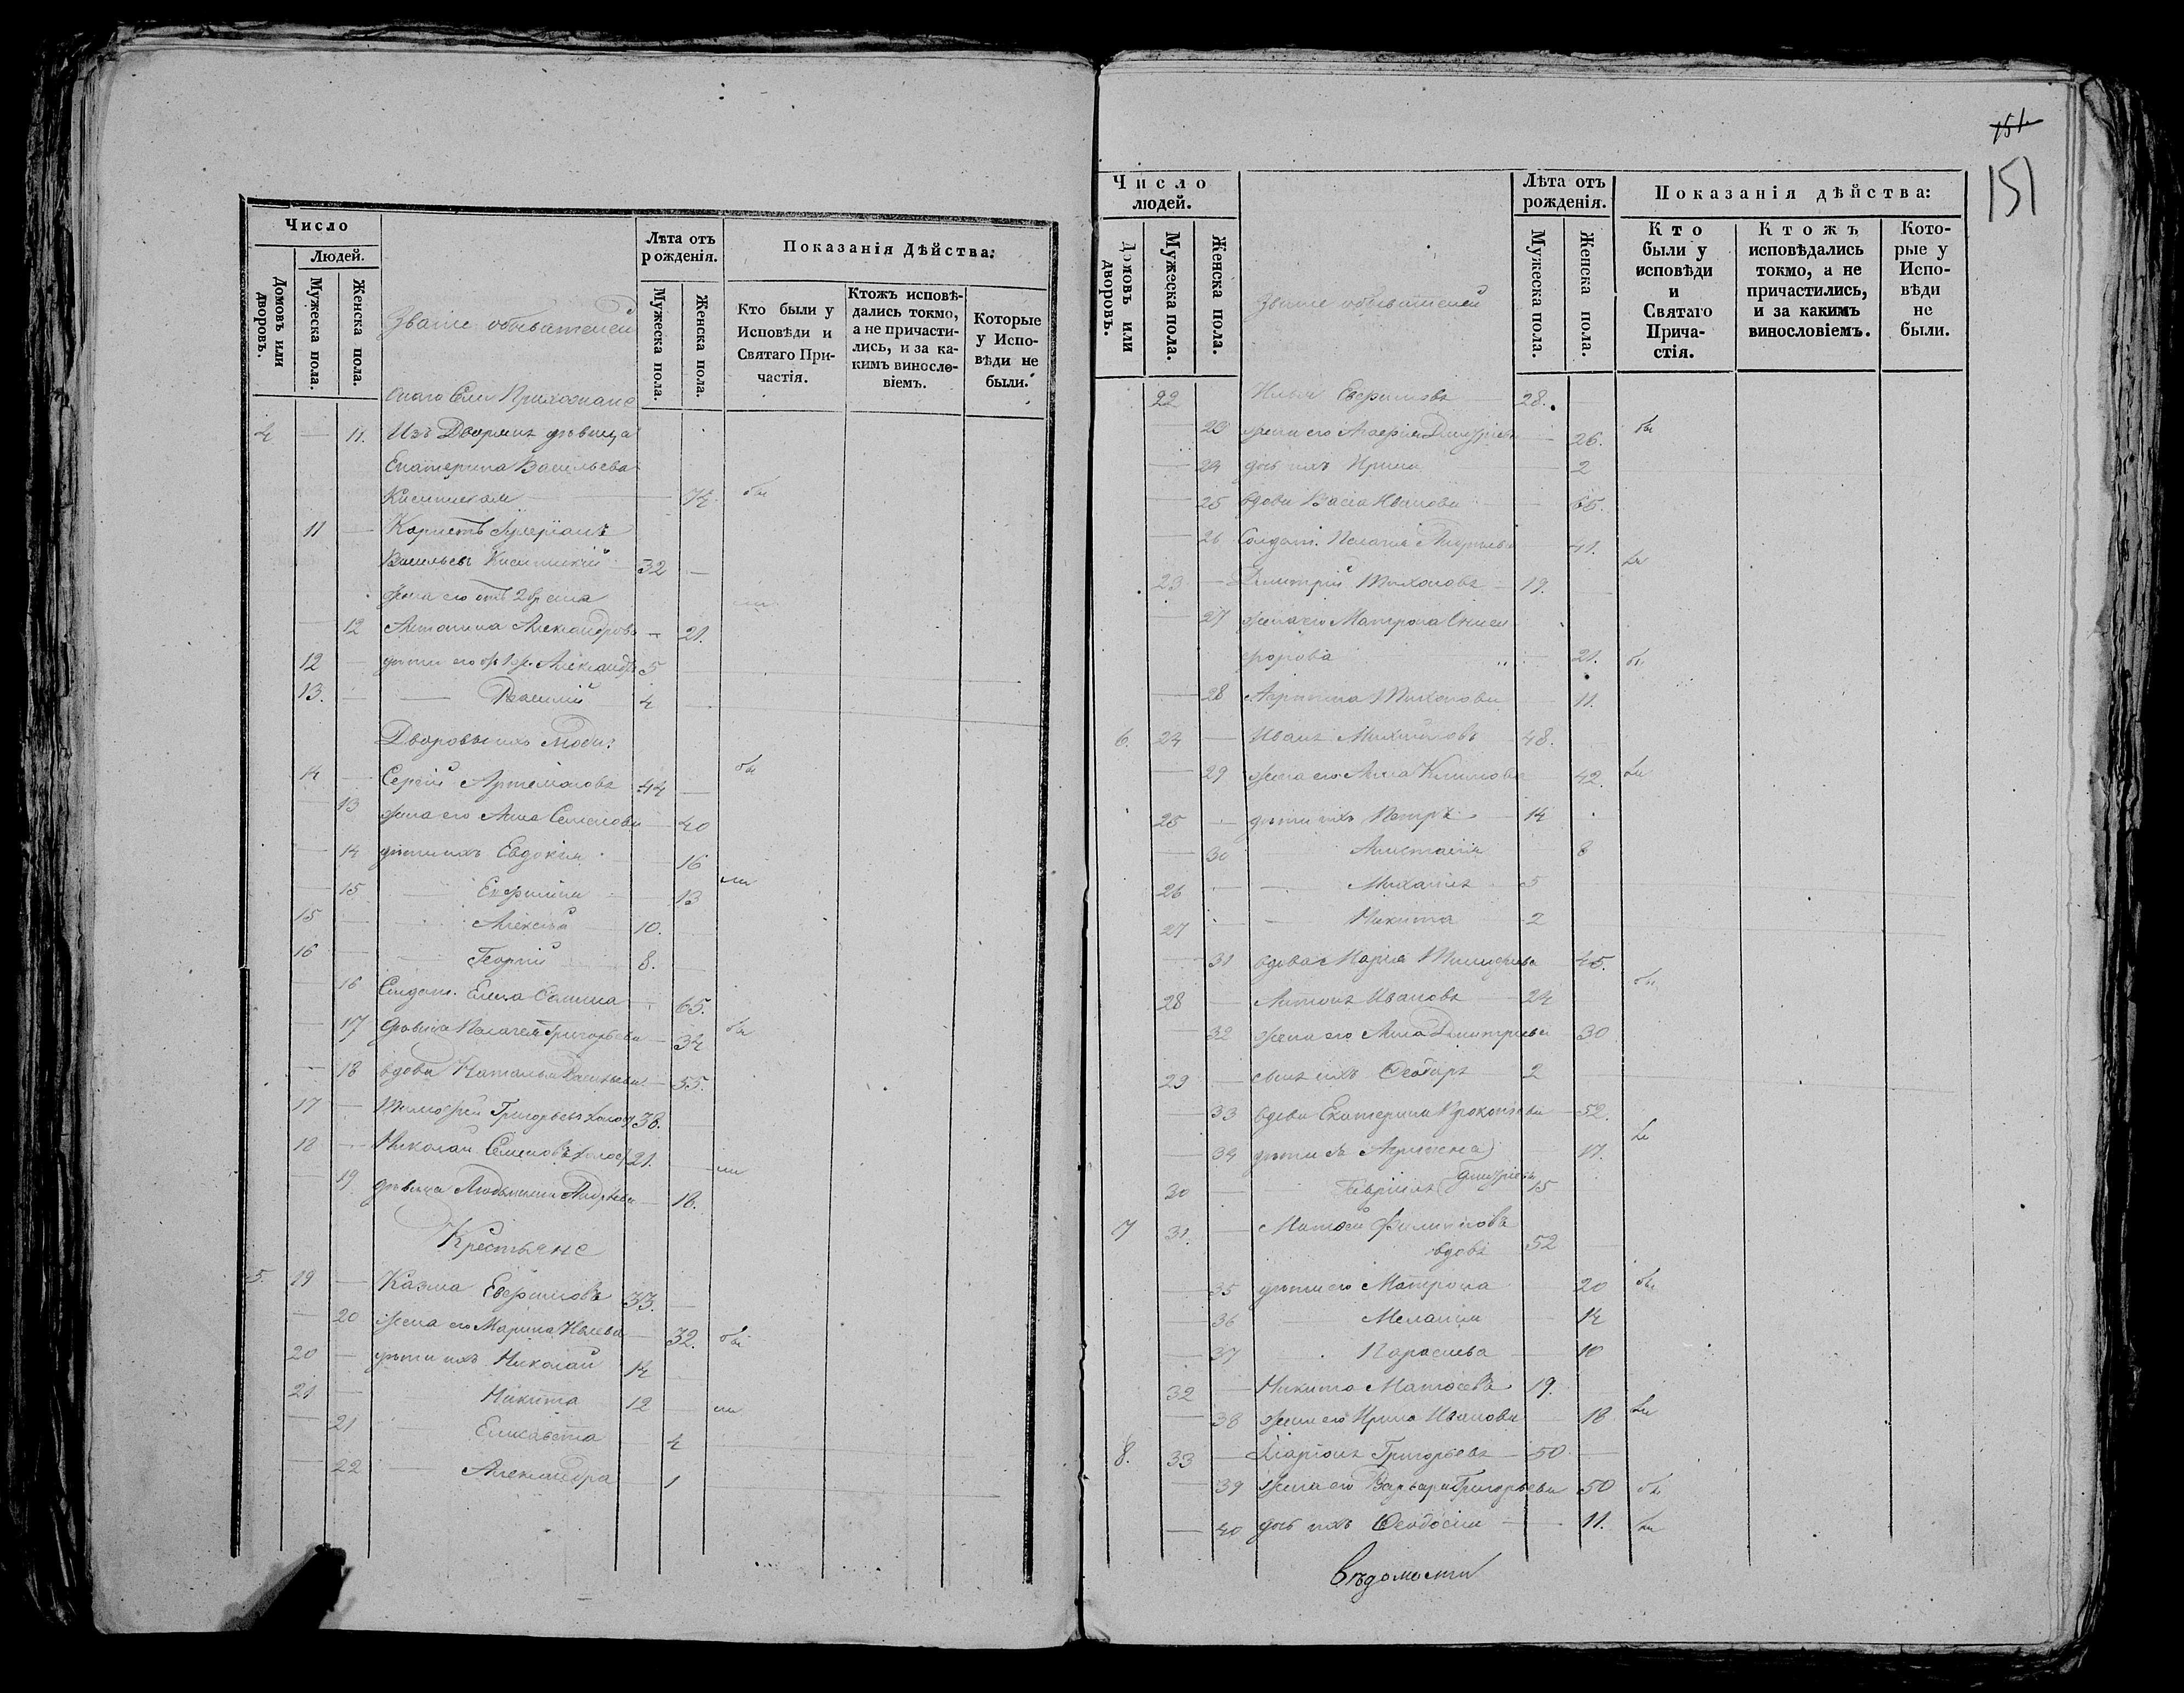 Число
Людей.
Домовъ или дворовъ.
Мужеска пола.
Женска пола.
Званіе обывателей
Лѣта отъ рожденія.
Мужеска пола.
Женска пола.
Показанія Дѣйства:
Кто были у Исповѣди и Святаго Причастія.
Ктожъ исповѣдались токмо, а не причастились, и за какимъ винословіемъ.
Которые у Исповѣди не были.
онаго Села Прихожане
4 — 11. Изъ Дворянъ дѣвица
Екатерина Васильева
74. бы
11 — Корнетъ
Васильевъ 32 —
Жена его отъ 2 брака
— 12 Антонина Александрова — 21.
12 — дѣти его Александръ 5
13. — Василій 4
Дворовые ихъ люди:
14 — Сергій Артемоновъ 44 — бы
— 13 жена его Анна Семенова — 40
— 14 дѣти ихъ Евдокія — 16
— 15 Евфимія — 13 ли
15 — Алексѣй 10.
16 — Георгій 8.
— 16 Солдат. Елена — 65.
— 17 дѣвица Пелагея Григорьева — 34 бы
— 18 вдова Наталья Васильева — 55.
17 — Тимофей Григорьевъ холос 38.
18 — Николай Семеновъ холос 21. ли
— 19 дѣвица Людмила Андреева — 18.
Крестьяне
5. 19 — Казма Евфимовъ 33.
— 20 жена его Марина Ильева — 32. бы
20 — дѣти ихъ Николай 14
21 — Никита 12 ли
— 21 Елисавета 4
— 22 Александра — 1
151
151
Число людей.
Домовъ или дворовъ.
Мужеска пола.
Женска пола.
Званіе обывателей
Лѣта отъ рожденія.
Мужеска пола.
Женска пола.
Показанія дѣйства:
Кто были у исповѣди и Святаго Причастія.
Ктожъ исповѣдались токмо, а не причастились, и за какимъ винословіемъ.
Которые у Исповѣди не были.
22 Илья Евфимовъ — 28.
— 23 жена его Агафія Дмитріева — 26. бы
— 24 дочь ихъ Ирина — 2
— 25 вдова Васса Иванова — 65.
— 26 Солдат. Пелагія — 41. ли
23 — Димитрій Тихоновъ — 19.
— 27 жена его Матрона Ониси
форова — 21. бы
— 28 Агрипина Тихонова 11.
6. 24 — Иванъ Михайловъ 48.
— 29 жена его Анна Климова 42. ли
25 — дѣти ихъ Петръ — 14
— 30 Анастасія 8
26 — Михаилъ 5
27 — Никита 2
— 31 вдова Марія Тимофеева 45. бы
28 — Антонъ Ивановъ 24
— 32 жена его Анна Дмитріева 30
29 — сынъ ихъ 2
— 33 вдова Екатерина Прокопіева — 52. ли
— 34 дѣти ея Агрипена 17.
30 — Гавріилъ Дмитріевы 15
7 31. — Матѳей Филиповъ
вдовъ 52
— 35 дѣти его Матрона 20 бы
36 Меланія 14
— 37 Параскева — 10
32 — Никита Матѳеевъ 19.
— 38 жена его Ирина Иванова 18 ли
8. 33 — Иларіонъ Григорьевъ — 50
— 39 жена его Варвара Григорьева 50 бы
— 40 дочь ихъ Ѳеодосія — 11. ли
Вѣдомости